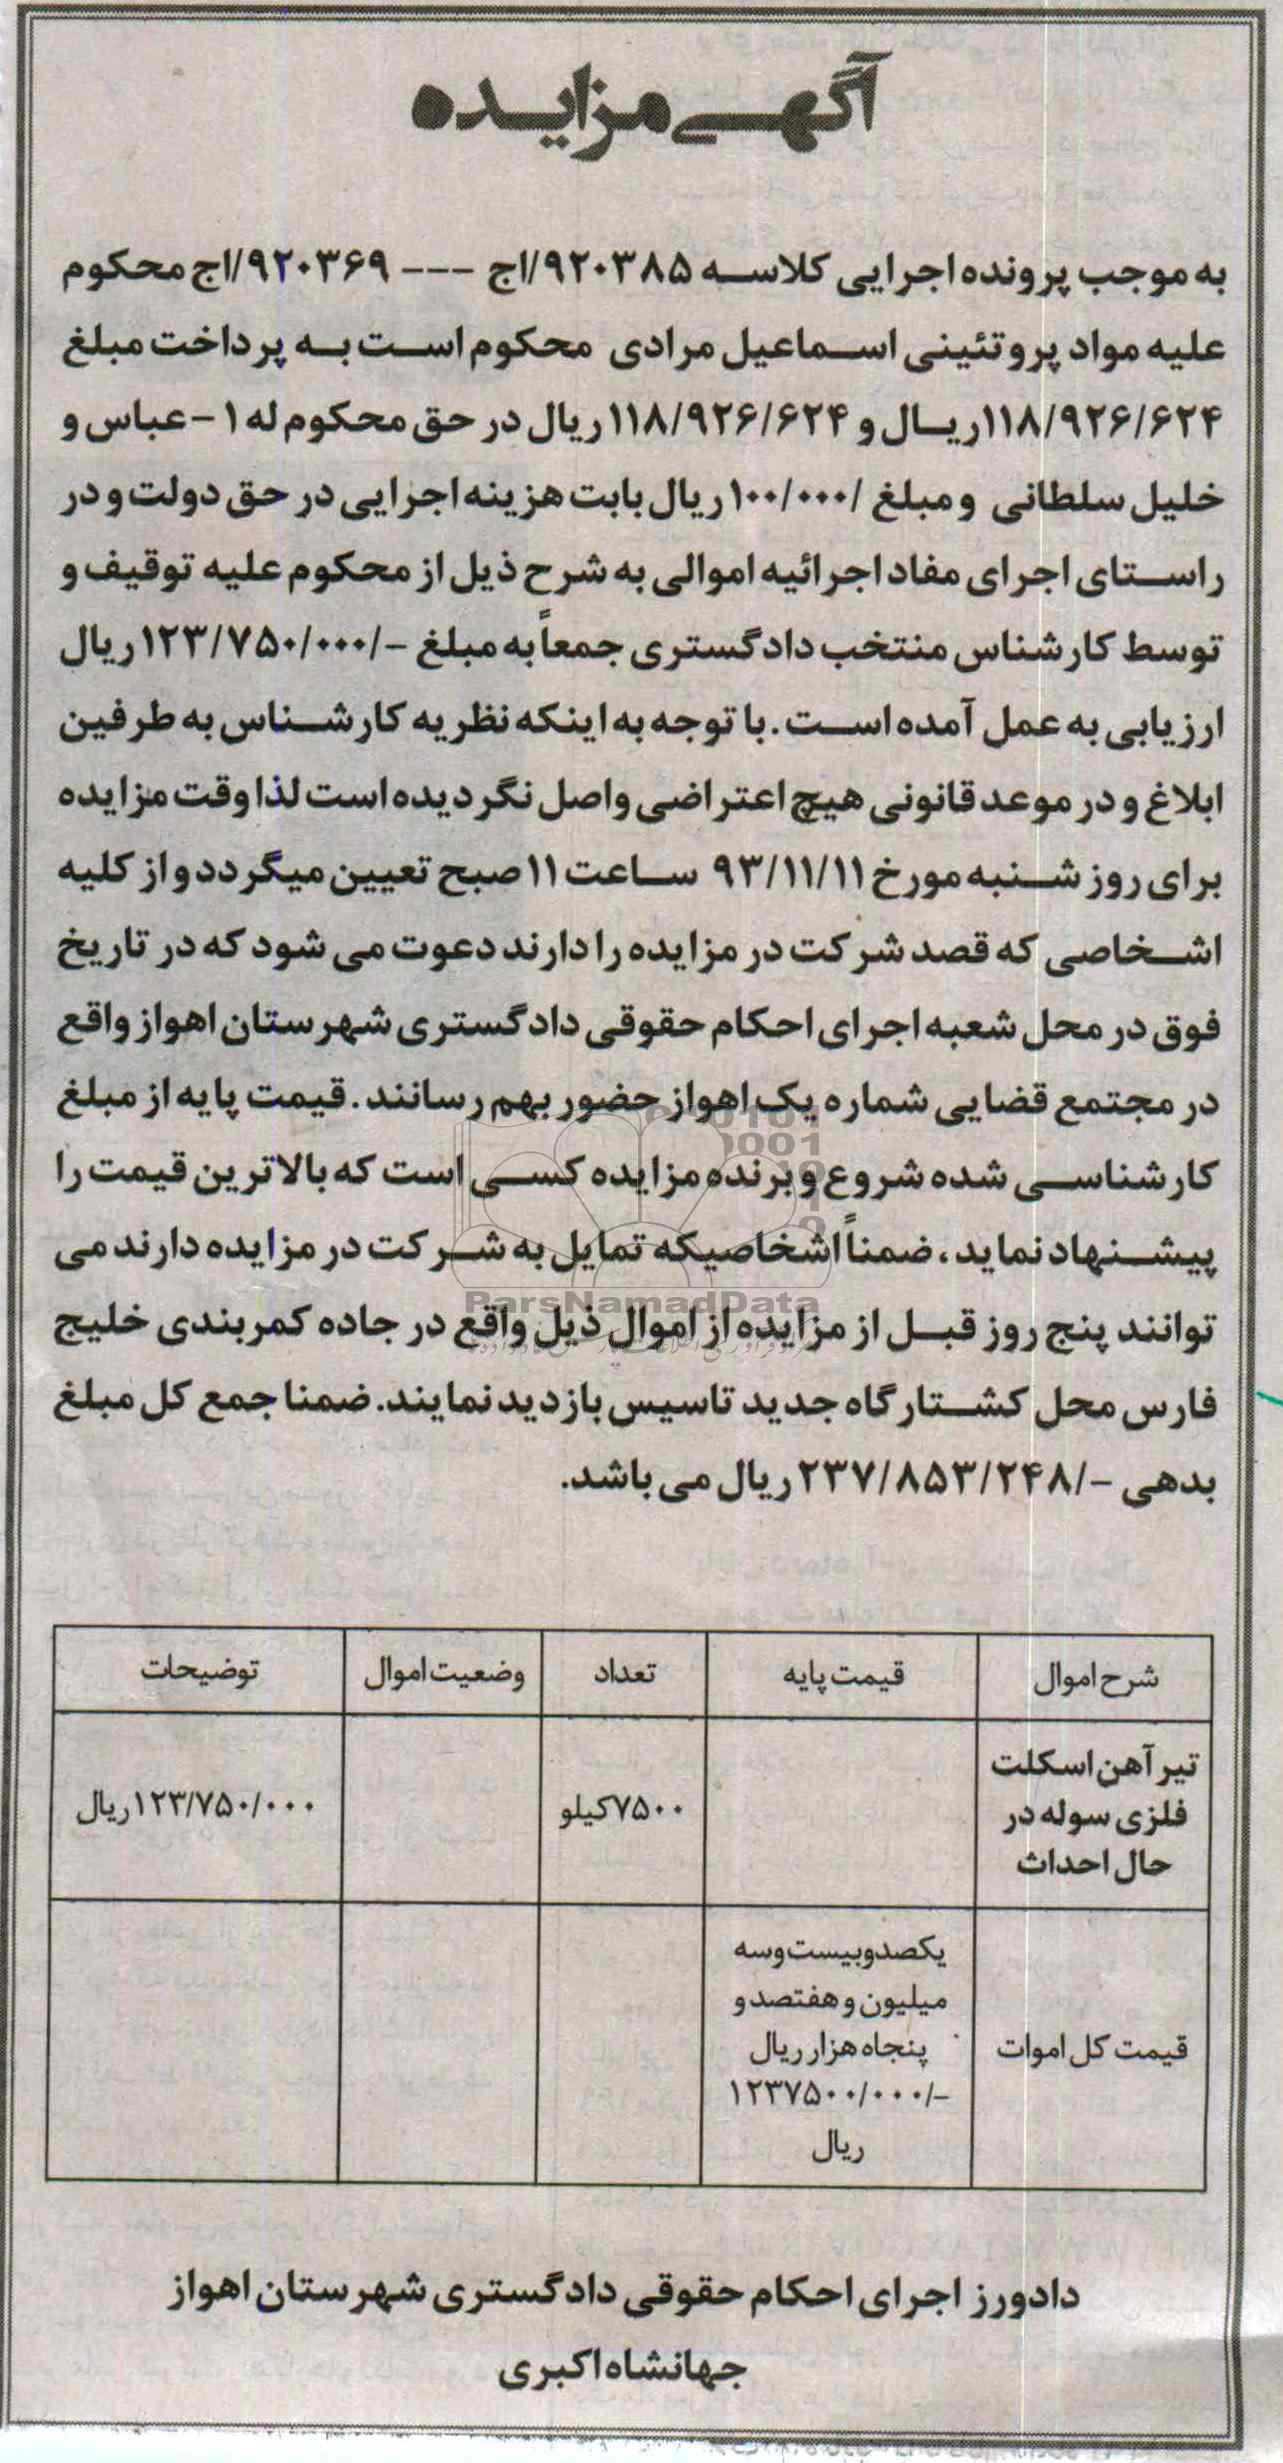 آگهی مزایده
به موجب پرونده اجرایی کلاسه ۹۲۰۳۸۵/اج --- ۹۲۰۳۶۹/اج محکوم
علیه مواد پروتئینی اسماعیل مرادی محکوم است به پرداخت مبلغ
۱۱۸/۹۲۶/۶۲۴ریال و ۱۱۸/۹۲۶/۶۲۴ ریال در حق محکوم له ۱- عباس و
خلیل سلطانی و مبلغ /۱۰۰/۰۰۰ ریال بابت هزینه اجرایی در حق دولت و در
راستای اجرای مفاد اجرائیه اموالی به شرح ذیل از محکوم علیه توقیف و
توسط کارشناس منتخب دادگستری جمعاً به مبلغ -/۱۲۳/۷۵۰/۰۰۰ ریال
ارزیابی به عمل آمده است. با توجه به اینکه نظریه کارشناس به طرفین
ابلاغ و در موعد قانونی هیچ اعتراضی واصل نگردیده است لذا وقت مزایده
برای روز شنبه مورخ ۹۳/۱۱/۱۱ ساعت ۱۱ صبح تعیین میگردد و از کلیه
اشخاصی که قصد شرکت در مزایده را دارند دعوت می شود که در تاریخ
فوق در محل شعبه اجرای احکام حقوقی دادگستری شهرستان اهواز واقع
در مجتمع قضایی شماره یک اهواز حضور بهم رسانند. قیمت پایه از مبلغ
کارشناسی شده شروع و برنده مزایده کسی است که بالاترین قیمت را
پیشنهاد نماید، ضمناً اشخاصیکه تمایل به شرکت در مزایده دارند می
توانند پنج روز قبل از مزایده از اموال ذیل واقع در جاده کمربندی خلیج
فارس محل کشتارگاه جدید تاسیس بازدید نمایند. ضمنا جمع کل مبلغ
بدهی -/۲۳۷/۸۵۳/۲۴۸ ریال می باشد.
ParsNamadData
شرح اموال قیمت پایه تعداد وضعیت اموال توضیحات
تیر آهن اسکلت
فلزی سوله در
حال احداث
۷۵۰۰کیلو
۱۲۳/۷۵۰/۰۰۰ریال
قیمت کل اموات
یکصدوبیست‌وسه
میلیون و هفتصد و
پنجاه هزار ریال
-/۱۲۳۷۵۰۰/۰۰۰
ریال
دادورز اجرای احکام حقوقی دادگستری شهرستان اهواز
جهانشاه اکبری